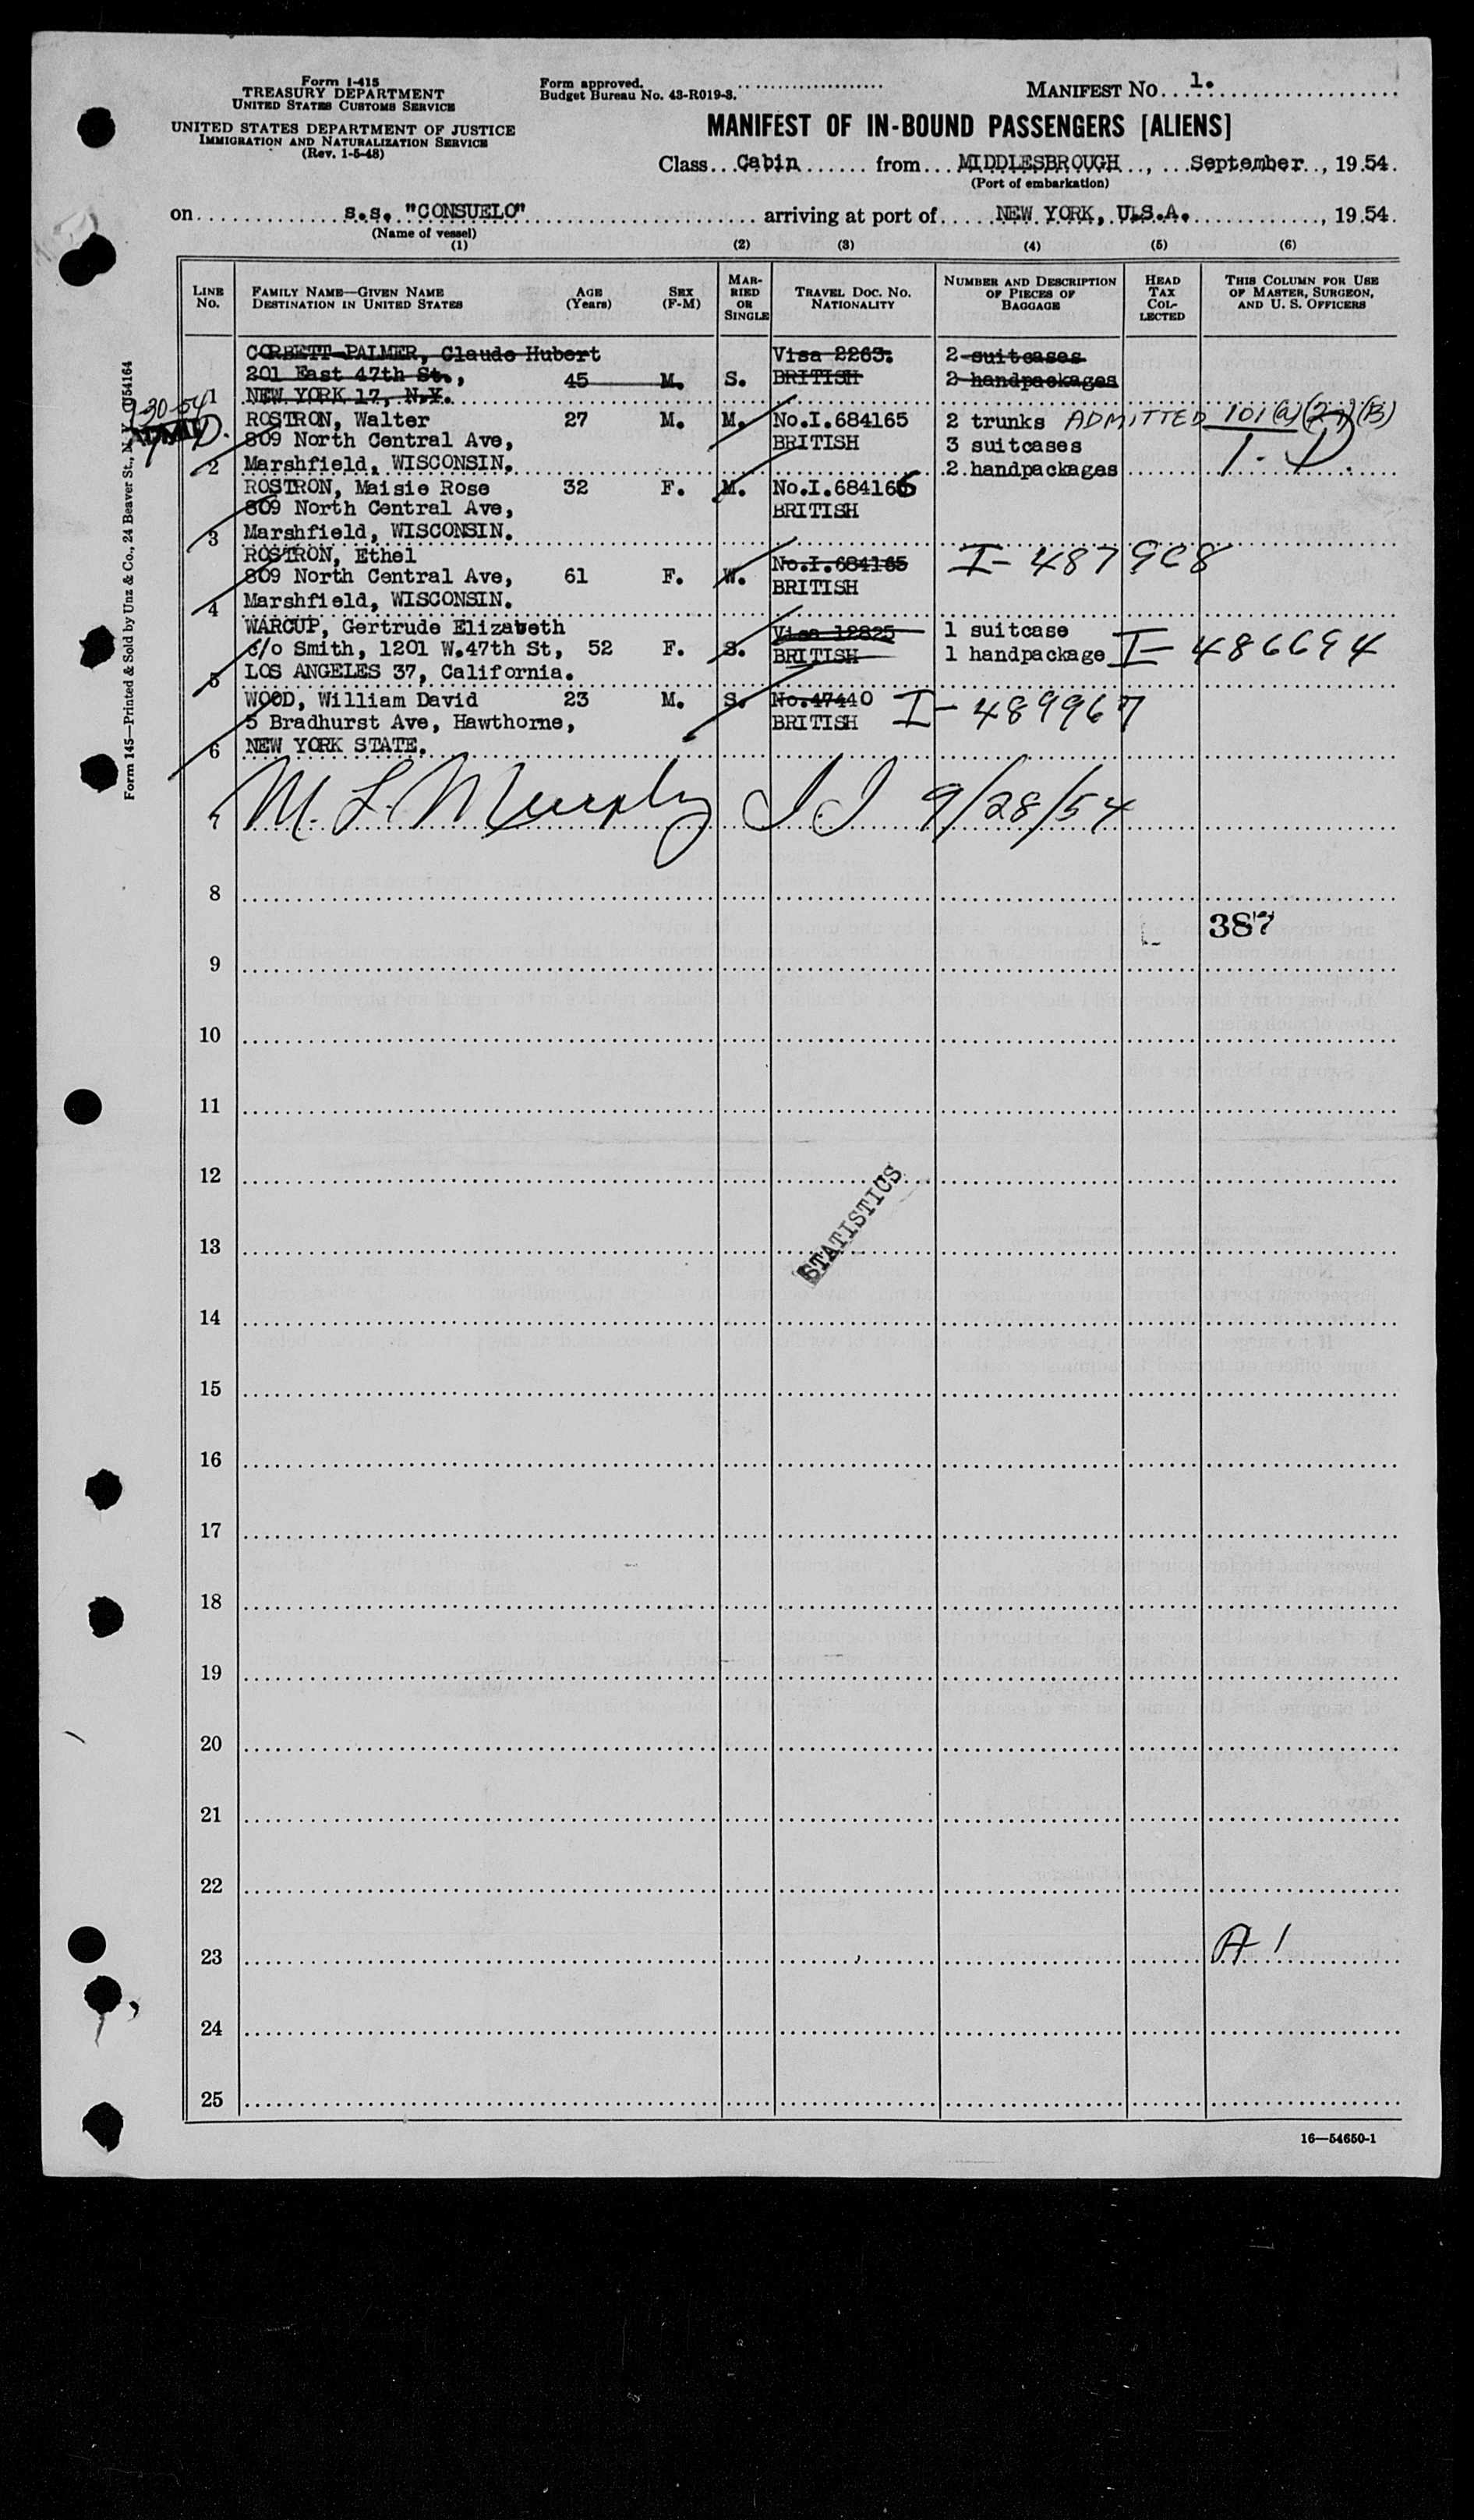 Form I-415
TREASURY DEPARTMENT
UNITED STATES CUSTOMS SERVICE
UNITED STATES DEPARTMENT OF JUSTICE
IMMIGRATION AND NATURALIZATION SERVICE
(Rev. 1-5-48)
Form approved.
Budget Bureau No. 43-R019-3.
MANIFEST NO. 1.
MANIFEST OF IN-BOUND PASSENGERS [ALIENS]
Class Cabin from MIDDLESBROUGH, September, 1954.
(Port of embarkation)
on s.s. "CONSUELO" arriving at port of NEW YORK, U.S.A., 1954.
(Name of vessel)
(1) (2) (3) (4) (5) (6)
LINE No.
FAMILY NAME—GIVEN NAME
DESTINATION IN UNITED STATES
AGE (Years)
SEX (F-M)
MARRIED OR SINGLE
TRAVEL DOC. NO. NATIONALITY
NUMBER AND DESCRIPTION OF PIECES OF BAGGAGE
HEAD TAX COLLECTED
THIS COLUMN FOR USE OF MASTER, SURGEON, AND U. S. OFFICERS
CORBETT-PALMER, Claude Hubert Visa 2263. 2 suitcases
201 East 47th St., 45 M. S. BRITISH 2 handpackages
1 NEW YORK 17, N.Y.
9-30-54
ROSTRON, Walter 27 M. M. No.I.684165 2 trunks ADMITTED 101(a)(27)(B)
809 North Central Ave, BRITISH 3 suitcases
2 Marshfield, WISCONSIN. 2 handpackages
ROSTRON, Maisie Rose 32 F. M. No.I.684166
809 North Central Ave, BRITISH
3 Marshfield, WISCONSIN.
ROSTRON, Ethel No.I.684165 I-487908
809 North Central Ave, 61 F. W. BRITISH
4 Marshfield, WISCONSIN.
WARCUP, Gertrude Elizabeth Visa 12825 1 suitcase
c/o Smith, 1201 W.47th St, 52 F. S. BRITISH 1 handpackage I-486694
5 LOS ANGELES 37, California.
WOOD, William David 23 M. S. No.47440 I-489967
5 Bradhurst Ave, Hawthorne, BRITISH
6 NEW YORK STATE.
7 M. L. Murphy II 9/28/54
8
387
9
10
11
12
STATISTICS
13
14
15
16
17
18
19
20
21
22
23 A 1
24
25
16—54650-1
Form 145—Printed & Sold by Unz & Co., 24 Beaver St., N.Y.